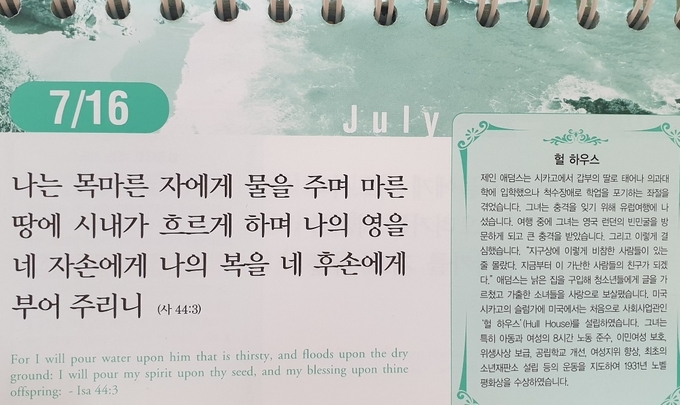 7/16
July
나는 목마른 자에게 물을 주며 마른
땅에 시내가 흐르게 하며 나의 영을
네 자손에게 나의 복을 네 후손에게
부어 주리니 (사 44:3)
For I will pour water upon him that is thirsty, and floods upon the dry
ground: I will pour my spirit upon thy seed, and my blessing upon thine
offspring: - Isa 44:3
헐 하우스
제인 애덤스는 시카고에서 갑부의 딸로 태어나 의과대
학에 입학했으나 척수장애로 학업을 포기하는 좌절을
겪었습니다. 그녀는 충격을 잊기 위해 유럽여행에 나
섰습니다. 여행 중에 그녀는 영국 런던의 빈민굴을 방
문하게 되고 큰 충격을 받았습니다. 그리고 이렇게 결
심했습니다. "지구상에 이렇게 비참한 사람들이 있는
줄 몰랐다. 지금부터 이 가난한 사람들의 친구가 되겠
다." 애덤스는 낡은 집을 구입해 청소년들에게 글을 가
르쳤고 가출한 소녀들을 사랑으로 보살폈습니다. 미국
시카고의 슬럼가에 미국에서는 처음으로 사회사업관인
'헐 하우스'(Hull House)를 설립하였습니다. 그녀는
특히 아동과 여성의 8시간 노동 준수, 이민여성 보호,
위생사상 보급, 공립학교 개선, 여성지위 향상, 최초의
소년재판소 설립 등의 운동을 지도하여 1931년 노벨
평화상을 수상하였습니다.